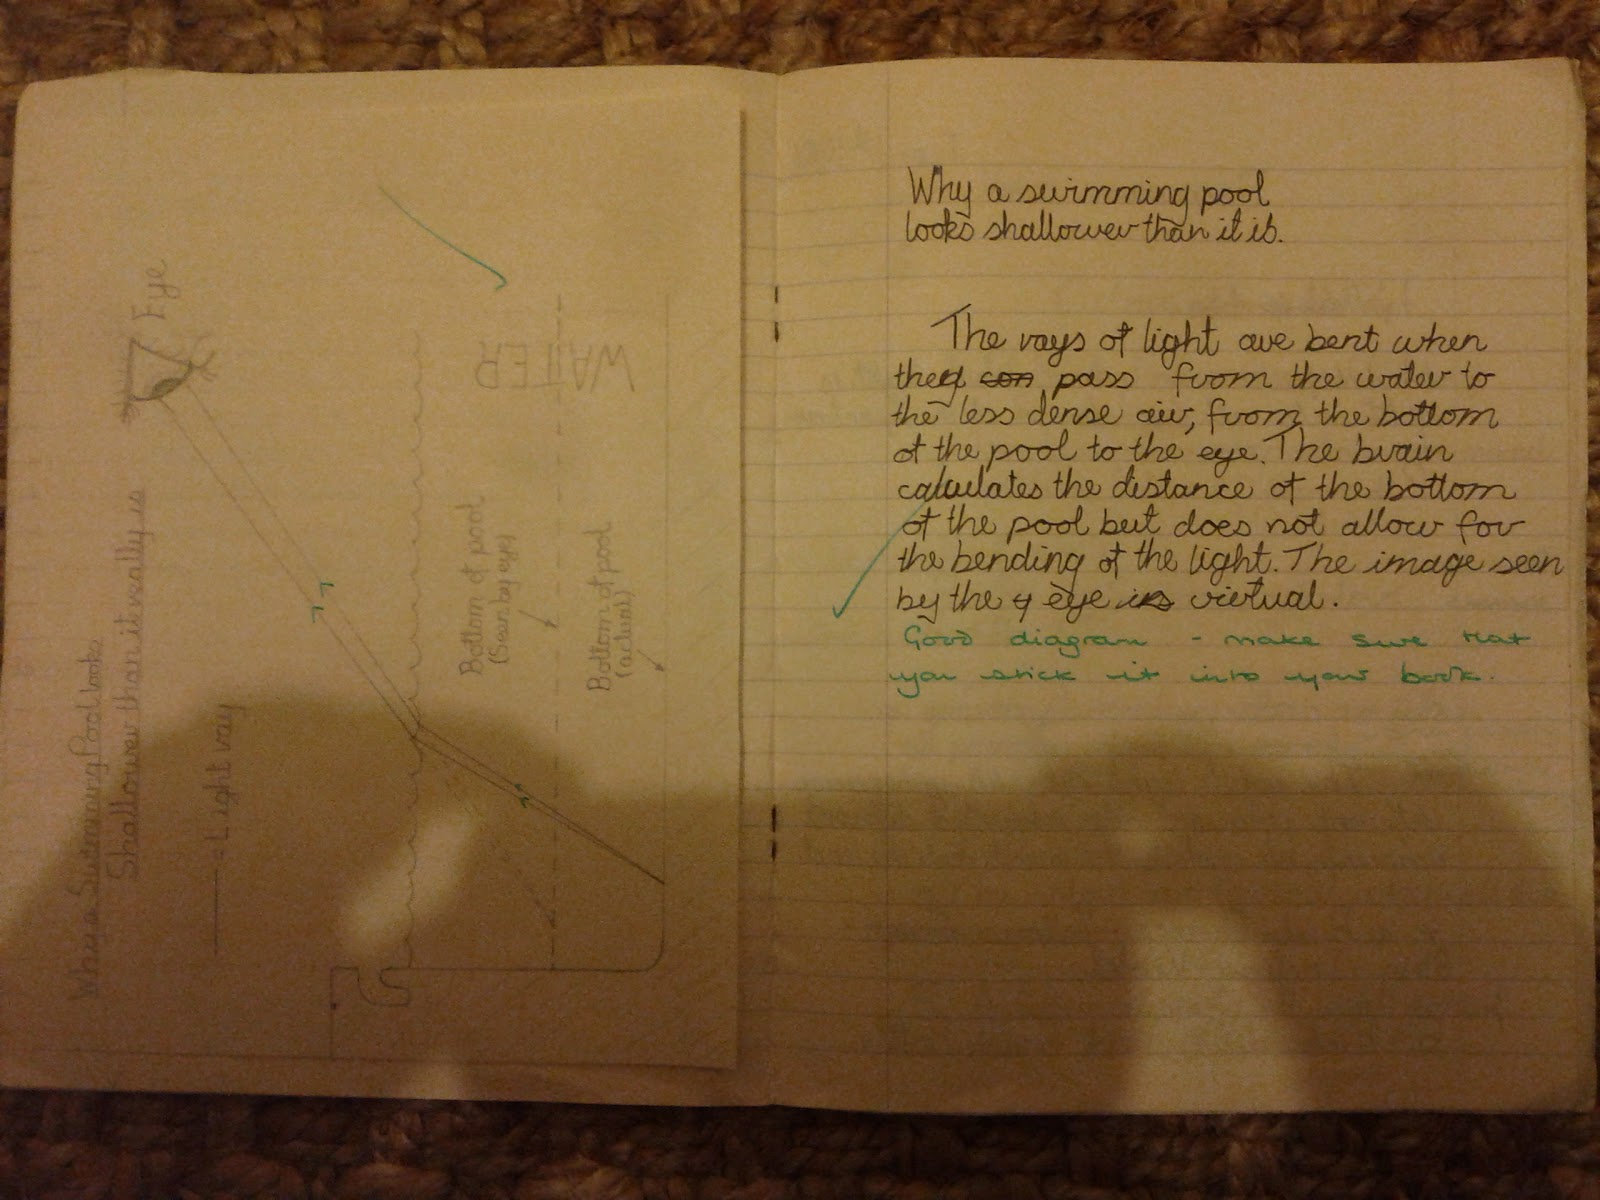 Why a Swimming Pool looks
Shallower than it really is
= Light ray
Eye
WATER
Bottom of pool
(Seen by eye)
Bottom of pool
(actual)
Why a swimming pool
looks shallower than it is.
The rays of light are bent when
they con pass from the water to
the less dense air, from the bottom
of the pool to the eye. The brain
calculates the distance of the bottom
of the pool but does not allow for
the bending of the light. The image seen
by the y eye is virtual.
Good diagram - make sure that
you stick it into your book.